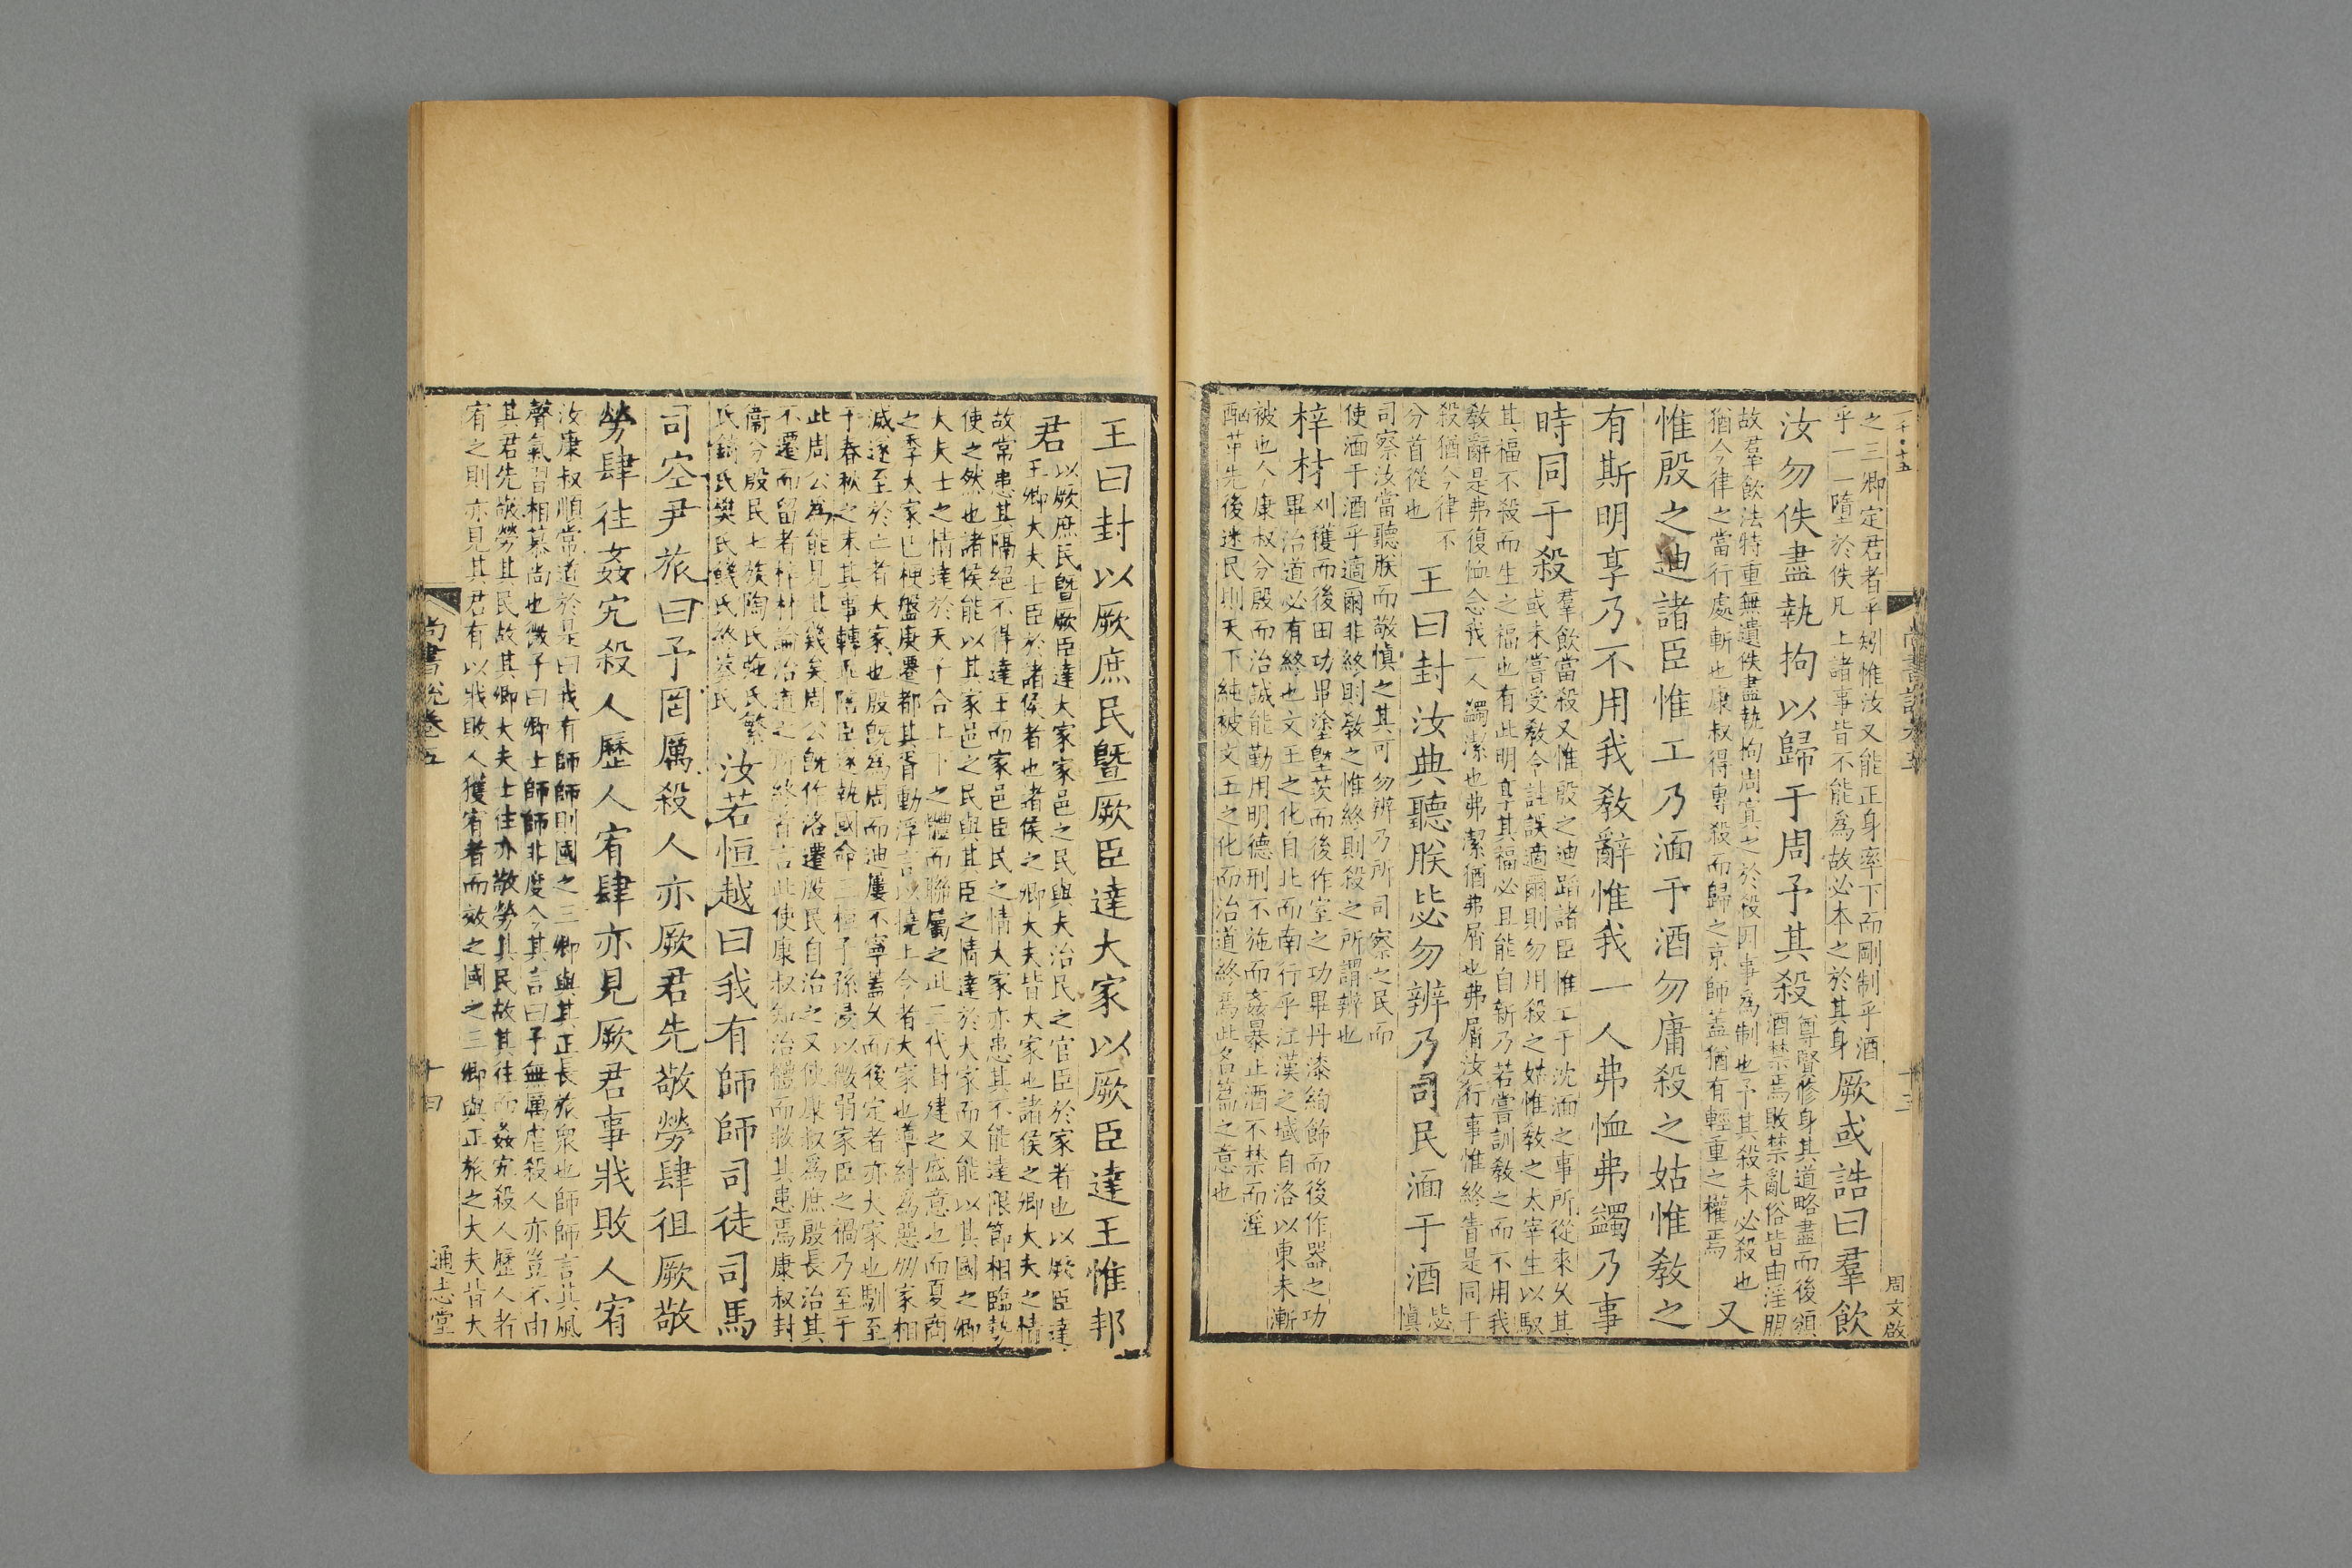 之三卿定君者乎矧惟汝又能正身率下而剛制乎酒
乎一一隳於佚凡上諸事皆不能為故必本之於其身
厥或誥曰羣飲
汝勿佚盡執拘以歸于周予其殺
尊賢修身其道略盡而後頒
酒禁焉敗禁亂俗皆由淫朋
故羣飲法特重無遺佚盡執拘周寘之於殺因事為制也予其殺未必殺也
猶今律之當行處斬也康叔得專殺而歸之京師蓋猶有輕重之權焉
又
惟殷之迪諸臣惟工乃湎于酒勿庸殺之姑惟敎之
有斯明享乃不用我敎辭惟我一人弗恤弗蠲乃事
時同于殺
羣飲當殺又惟殷之迪蹈諸臣惟工于沈湎之事所從來久其
或未嘗受敎令詿誤適爾則勿用殺之姑惟敎之太宰生以馭
其福不殺而生之福也有此明享其福必且能自新乃若嘗訓敎之而不用我
敎辭是弗復恤念我一人蠲潔也弗潔猶弗屑也弗屑汝行事惟終眚是同于
殺猶今律不
分首從也
王曰封汝典聽朕毖勿辨乃司民湎于酒
毖
愼
司察汝當聽朕而敬愼之其可勿辨乃所司察之民而
使湎于酒乎適爾非終則敎之惟終則殺之所謂辨也
梓材
刈獲而後田功畢塗塈茨而後作室之功畢丹漆絢飾而後作器之功
畢治道必有終也文王之化自北而南行乎江漢之域自洛以東未漸
被也今康叔分殷而治誠能勤用明德刑不施而姦暴止酒不禁而淫
酗革先後迷民則天下純被文王之化而治道終焉此名篇之意也
周文啟
尚書說卷五
十三
王曰封以厥庶民曁厥臣達大家以厥臣達王惟邦
君
以厥庶民曁厥臣達大家家邑之民與夫治民之官臣於家者也以厥臣達
王卿大夫士臣於諸侯者也諸侯之卿大夫皆大家也諸侯之卿大夫之情
故常患其隔絕不得達士而家邑臣民之情大家亦患其不能達限節相臨執
使之然也諸侯能以其家邑之民與其臣之情達於大家而又能以其國之卿
大夫士之情達於天子合上下之體而聯屬之此三代封建之盛意也而夏商
之季大家已梗盤庚遷都其胥動浮言以撓上令者大家也導紂為惡朋家相
滅遂至於亡者大家也殷旣為周而迪屢不寧蓋久而後定者亦大家也馴至
于春秋之末其事轉亟陪臣遂執國命三桓子孫浸以微弱家臣之禍乃至于
此周公為能見其幾矣周公旣作洛遷殷民自治之又使康叔為庶殷長治其
不遷而留者梓材論治道之所終首言此使康叔知治體而救其患焉康叔封
衞分殷民七族陶氏施氏繁
氏錡氏樊氏饑氏終葵氏
汝若恒越曰我有師師司徒司馬
司空尹旅曰予罔厲殺人亦厥君先敬勞肆徂厥敬
勞肆往姦宄殺人歷人宥肆亦見厥君事戕敗人宥
汝康叔順常道於是曰我有師師則國之三卿與其正長旅衆也師師言其風
聲氣習相慕尚也微子曰卿士師師非度今其言曰予無厲虐殺人亦豈不由
其君先敬勞其民故其卿大夫士往亦敬勞其民故其往而姦宄殺人歷人者
宥之則亦見其君有以戕敗人獲宥者而效之國之三卿與正旅之大夫皆大
尚書說卷五
十四
通志堂